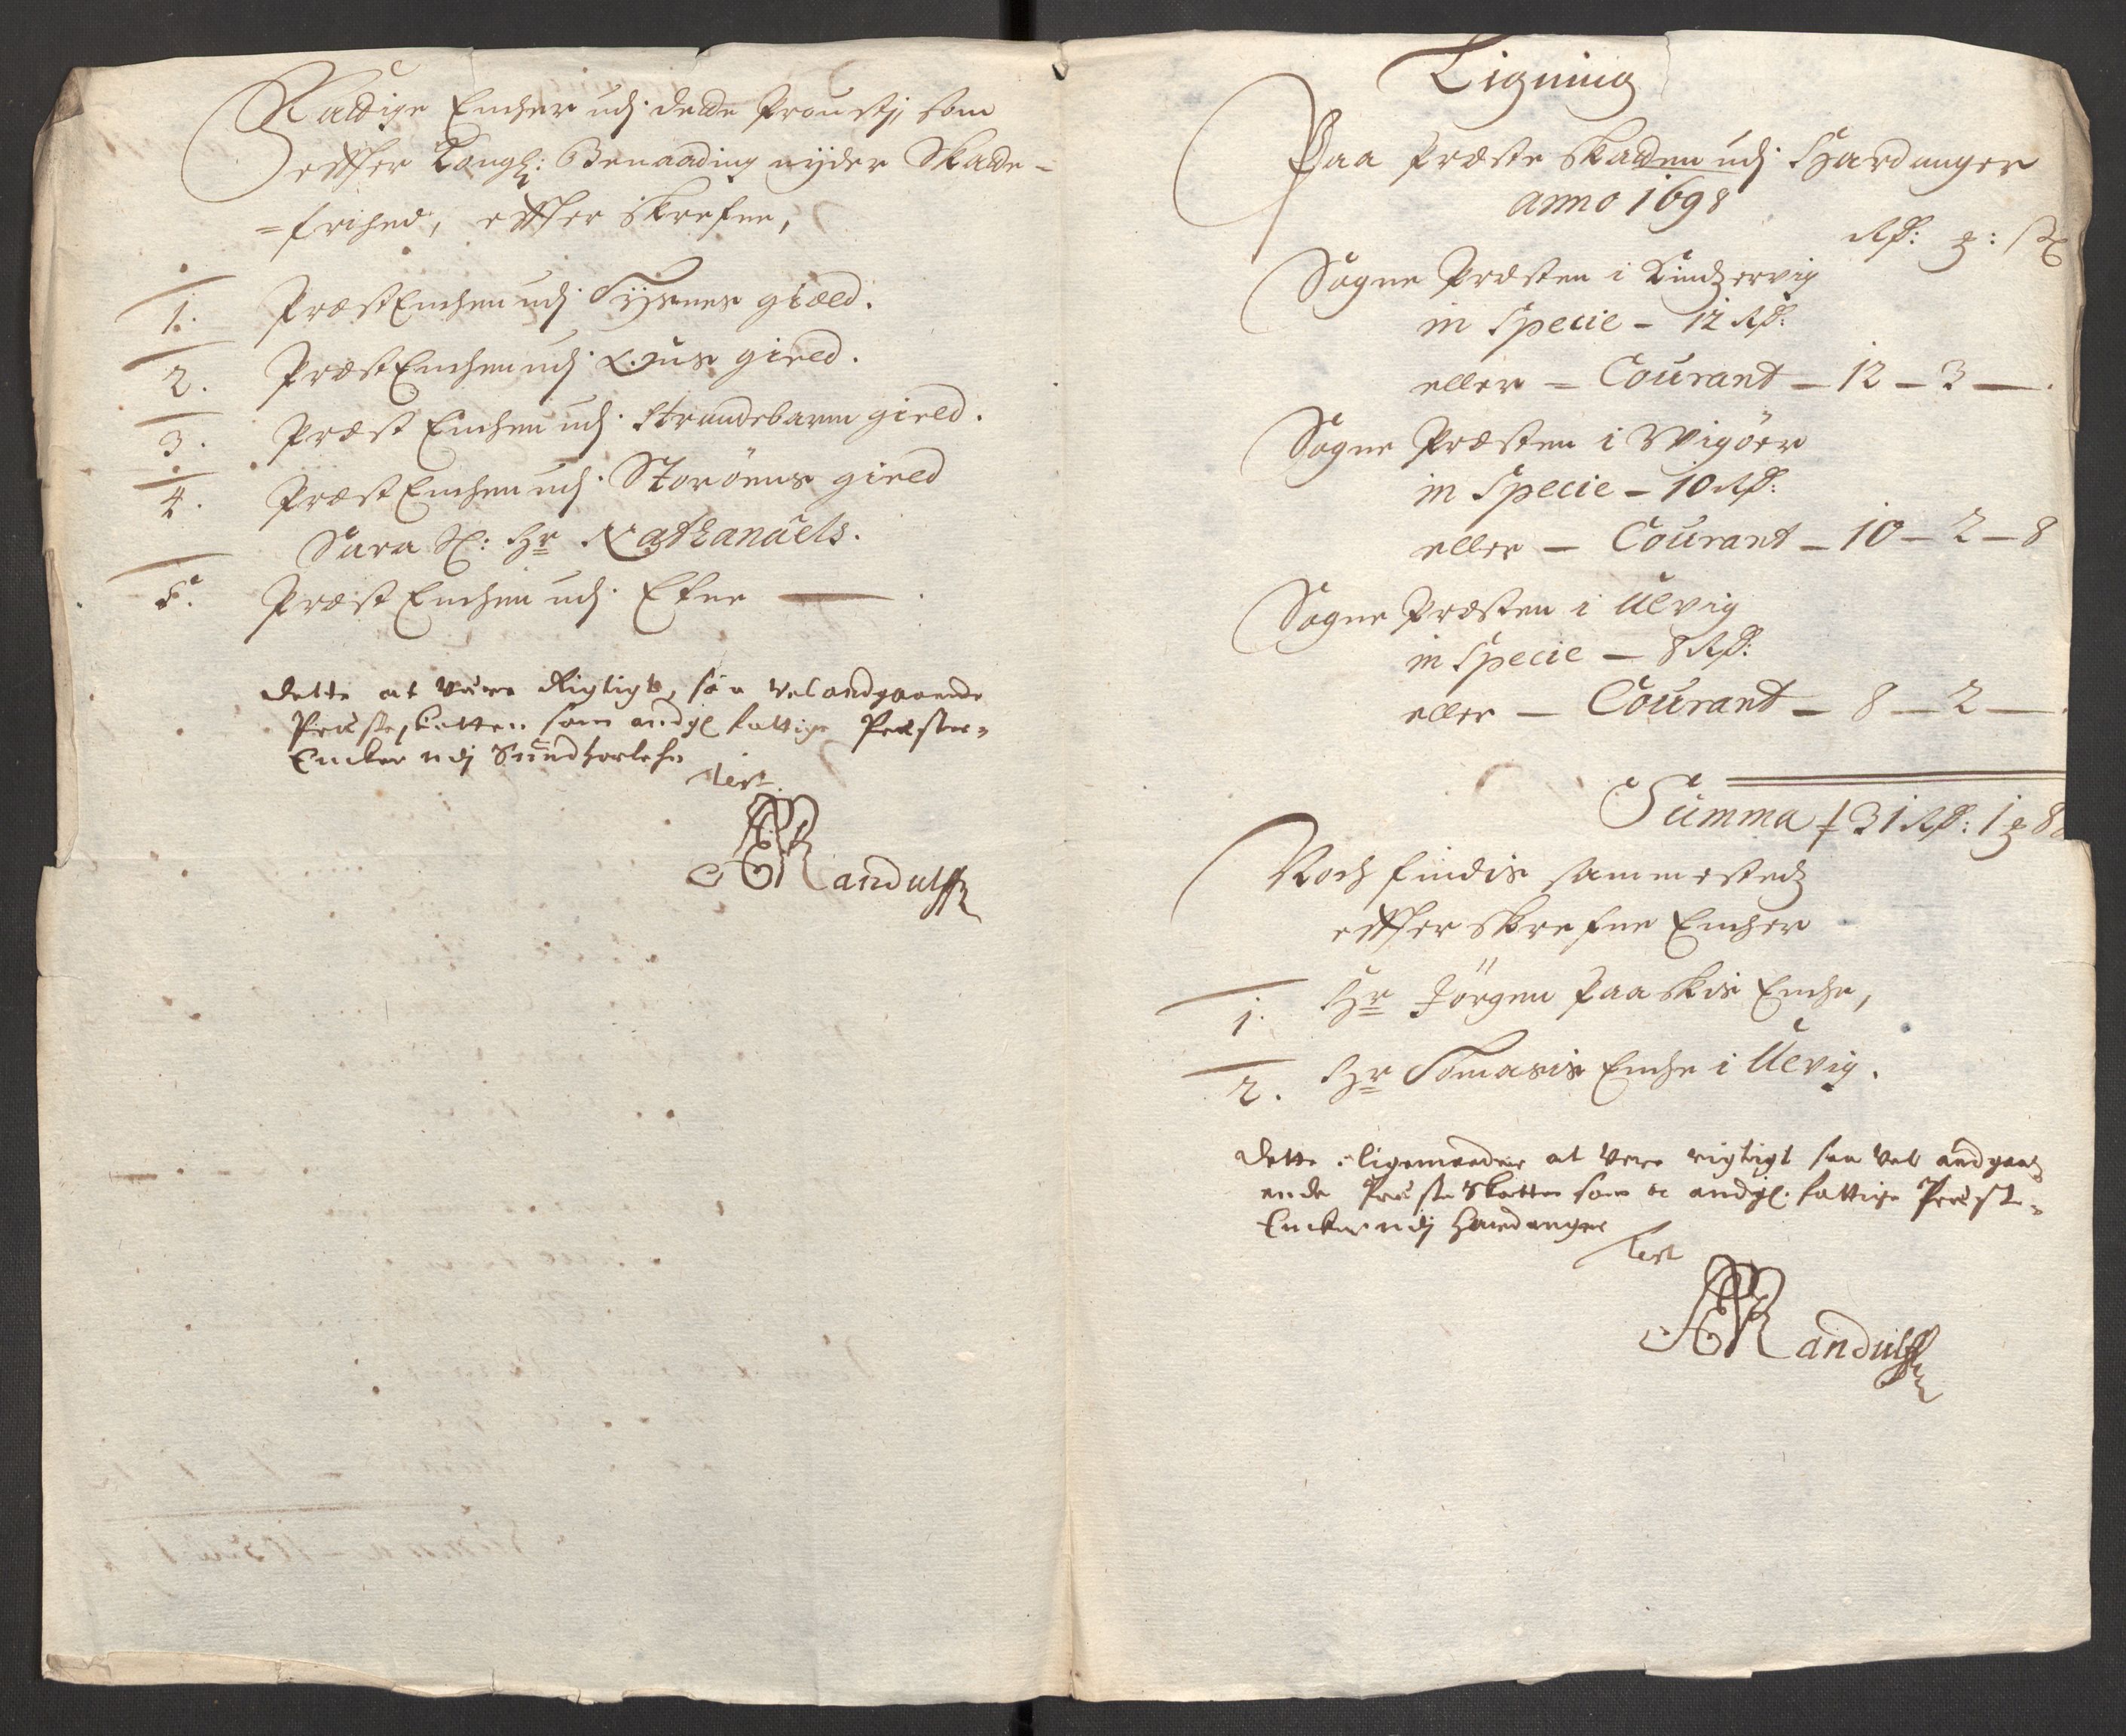 Fattige Encher udj dette Proustj, som
effter Kongl: Benaading nyder Skatte-
=frihed, effter skrefne,
1. PræstEnchen udj Tyssnes gield.
2. PræstEnchen udj Øus gield.
3. Præst Enchen udj Strandebarm gield.
4. Præst Enchen udj Storöens gield
Sara Sl: Hr Nathanaels.
5. Præst Enchen udj Etne
dette at være Rigtigt, saa vel andgaaende
Præsteskatten som andgl fattige Præste=
Encker udj Sundhorlehn
Test
Randulff
Ligning
Paa Præste Skatten udj Hardanger
anno 1698
Rd: : s
Sogne Præsten i Kindzervig
in Specie - 12 Rd:
eller - Courant - 12 - 3 -
Sogne Præsten i Wigöer
in Specie - 10 Rd:
eller - Courant - 10 - 2 - 8
Sogne Præsten i Ulvig
in Specie - 8 Rd:
eller - Courant - 8 - 2 -
Summa 31 Rd: 1 8
Noch findis sammestedz
effter skrefne Encher
1. Hr Jörgen Paaskis Enche,
2. Hr Tomasis Enche i Ulvig.
dette ligemaade at være rigtigt saa vel andgaa
ende Præste Skatten som andgl. fattige Præste=
Encker udj Hardanger
Test
Randulff